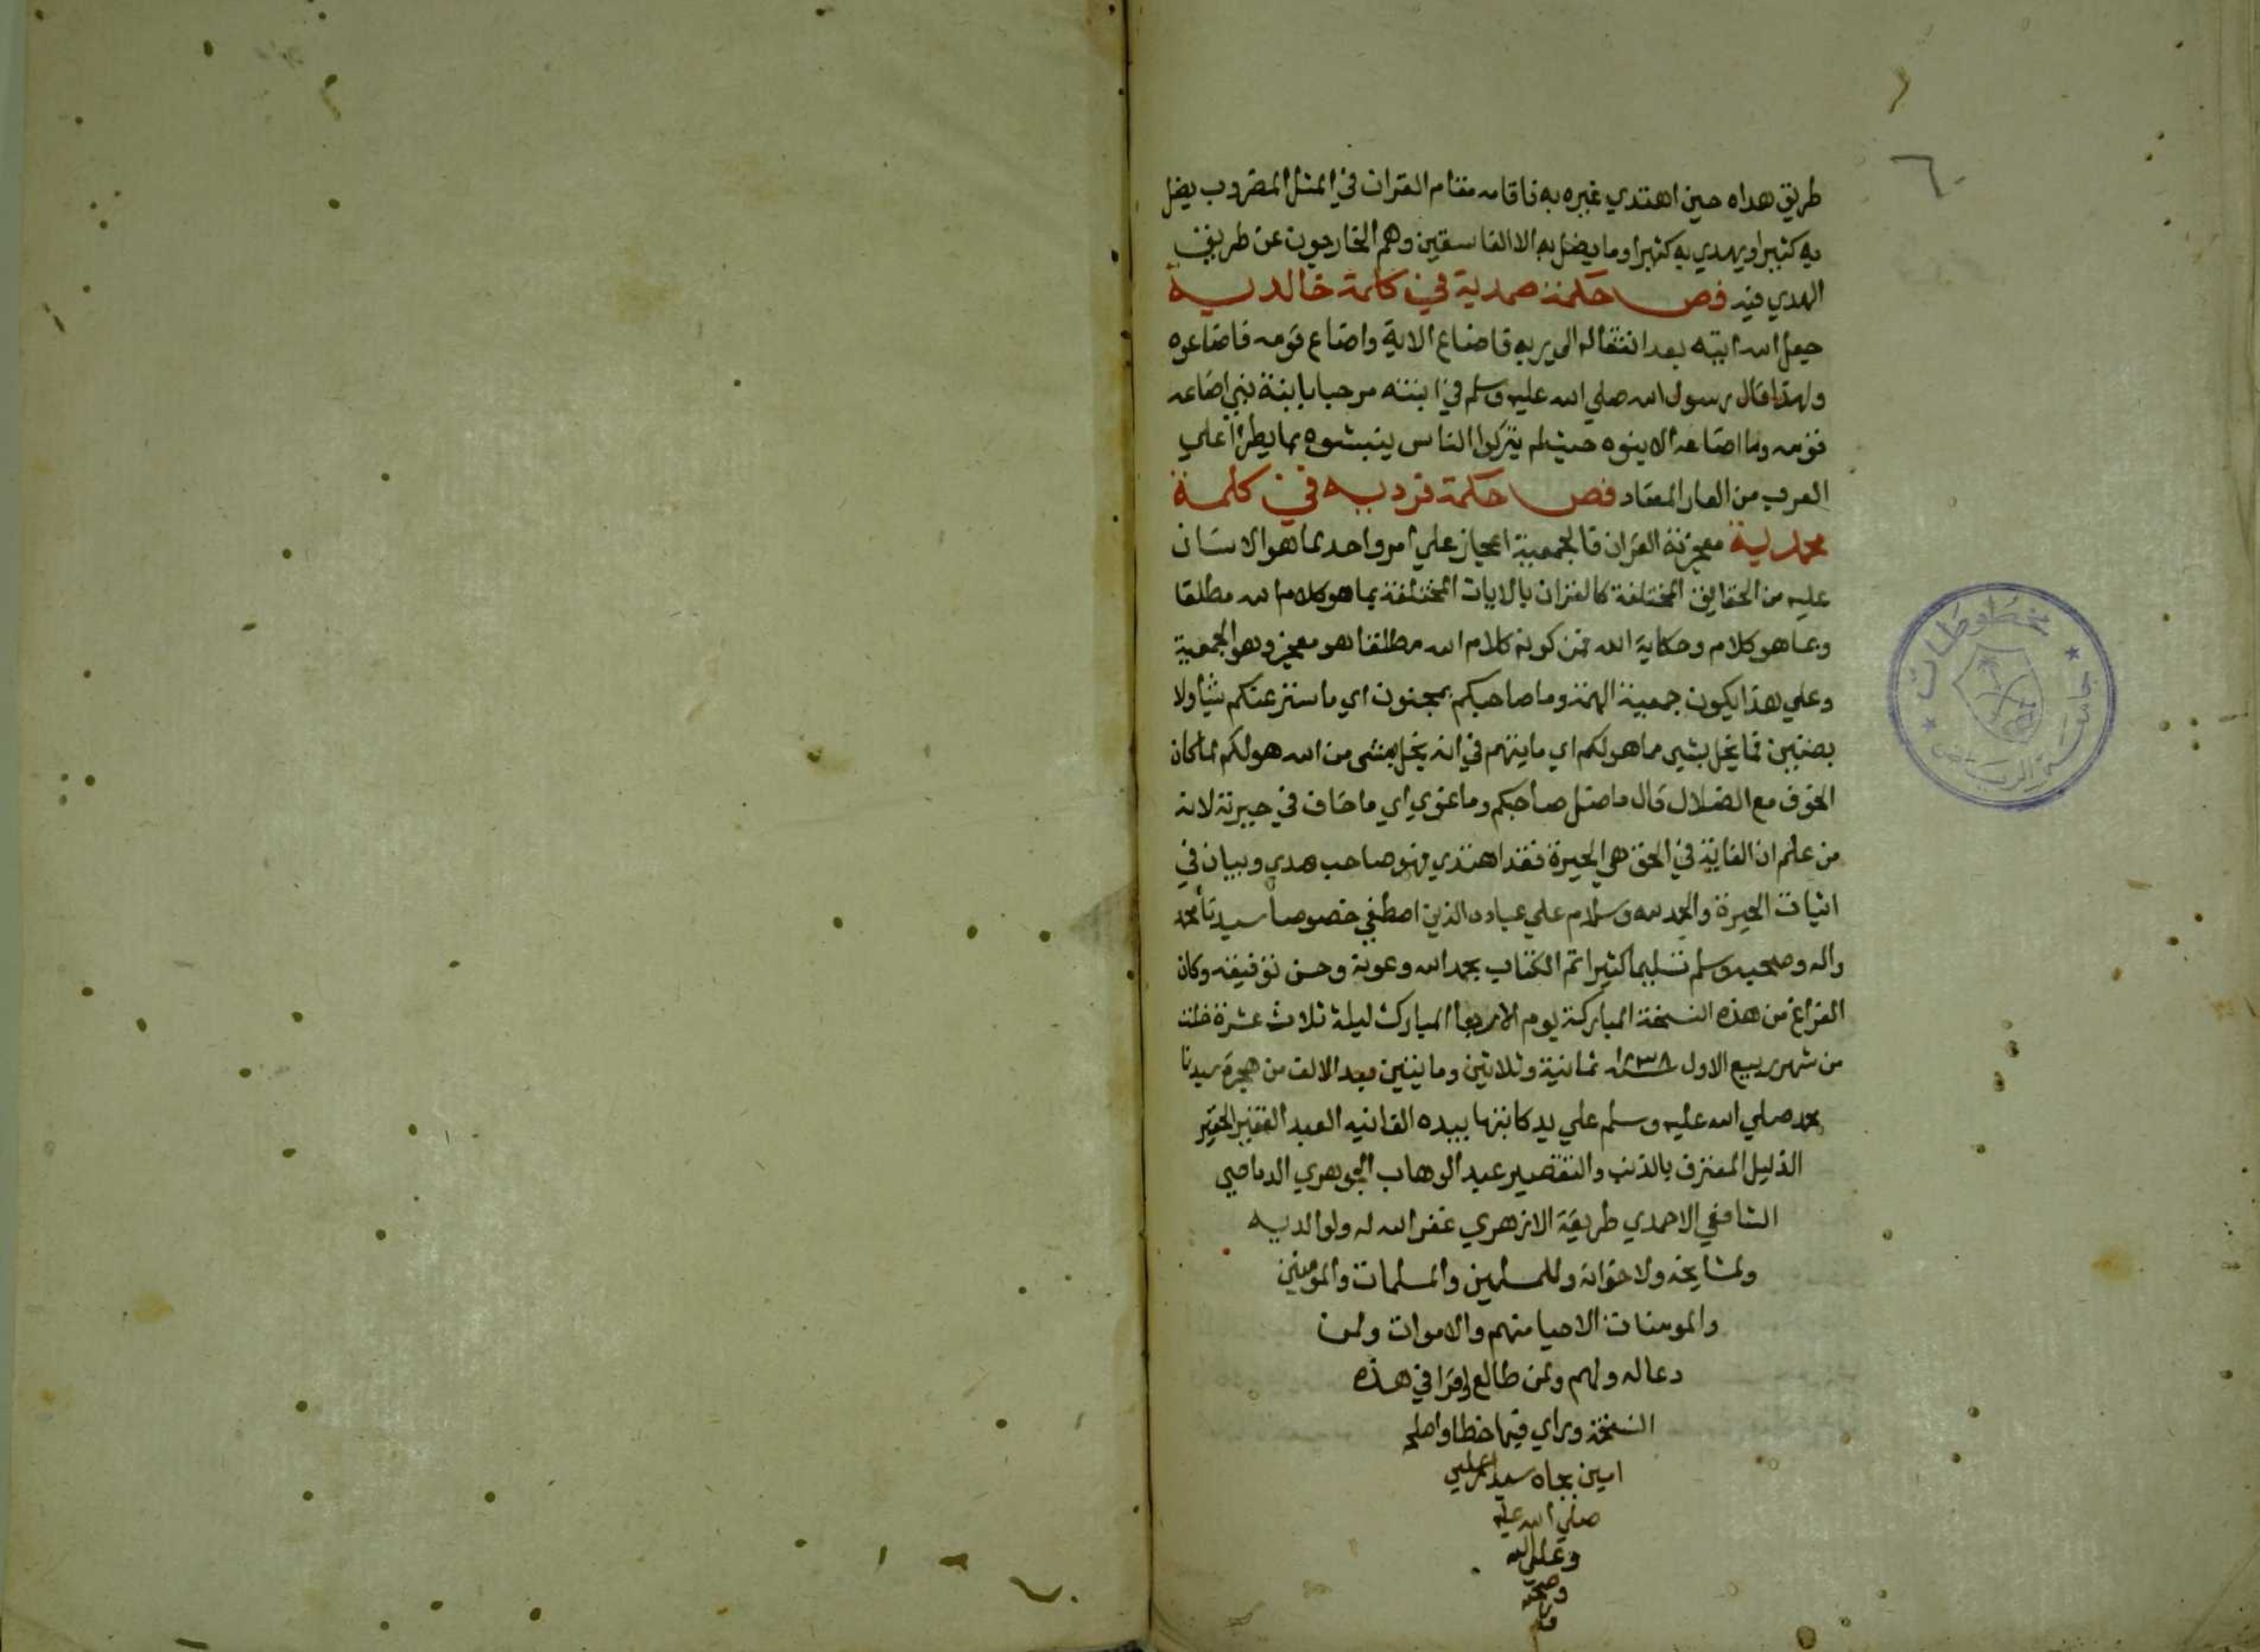 ٦٠
طريق هداه حين اهتدي غيره به فاقامه مقام القران في المثل المضروب يضل
به كثيرا ويهدي به كثيرا وما يضل به الا الفاسقين وهم الخارجون عن طريق
الهدي فيه فص حكمة صمدية في كلمة خالدية
جعل الله ايته بعد انتقاله الي ربه فاضاع الاية واضاع قومه فاضاعوه
ولهذا قال رسول الله صلي الله عليه وسلم في ابنته مرحبا بابنة نبي اضاعه
قومه وما اضاعه الا بنوه حيث لم يتركوا الناس ينبشوه بما يطرا علي
العرب من العار المعتاد فص حكمة فردية في كلمة
محمدية معجزته القران فالجمعية اعجاز علي امر واحد بما هو الانسان
عليه من الحقايق المختلفة كالقران بالايات المختلفة بما هو كلام الله مطلقا
وبما هو كلام وحكاية الله فمن كونه كلام الله مطلقا هو معجز وهو الجمعية
وعلي هذا يكون جمعية الهمة وما صاحبكم بمجنون اي ما ستر عنكم شيا ولا
بضنين فما يخل بشي مما هو لكم اي ما يتهم في انه يخل بشي من الله هو لكم لما كان
الخوف مع الضلال قال ما ضل صاحبكم وما غوي اي ما خاف في حيرته لانه
من علم ان الغاية في الحق هي الحيرة فقد اهتدي فهو صاحب هدي وبيان في
اثبات الحيرة والحمد لله وسلام علي عباده الذين اصطفي خصوصا سيدنا محمد
واله وصحبه وسلم تسليما كثيرا تم الكتاب بحمد الله وعونه وحسن توفيقه وكان
الفراغ من هذه النسخة المباركة يوم الاربعا المبارك ليلة ثلاث عشرة خلت
من شهر ربيع الاول ١٢٣٨ ثمانية وثلاثين وماىتين بعد الالف من هجرة سيدنا
محمد صلي الله عليه وسلم علي يد كاتبها بيده الفانيه العبد الفقير الحقير
الذليل المعترف بالذنب والتقصير عبد الوهاب الجوهري الدماصي
الشافعي الاحمدي طريقة الازهري غفر الله له ولوالديه
ولمشايخه ولاخوانه وللمسلمين والمسلمات والمومنين
والمومنات الاحيا منهم والاموات ولمن
دعا له ولهم ولمن طالع او قرا في هذه
النسخة وراي فيها خطا واصلحه
امين بجاه سيد المرسلين
صلي الله عليه
وعلي اله
وصحبه
مخطوطات
جامعة الرياض